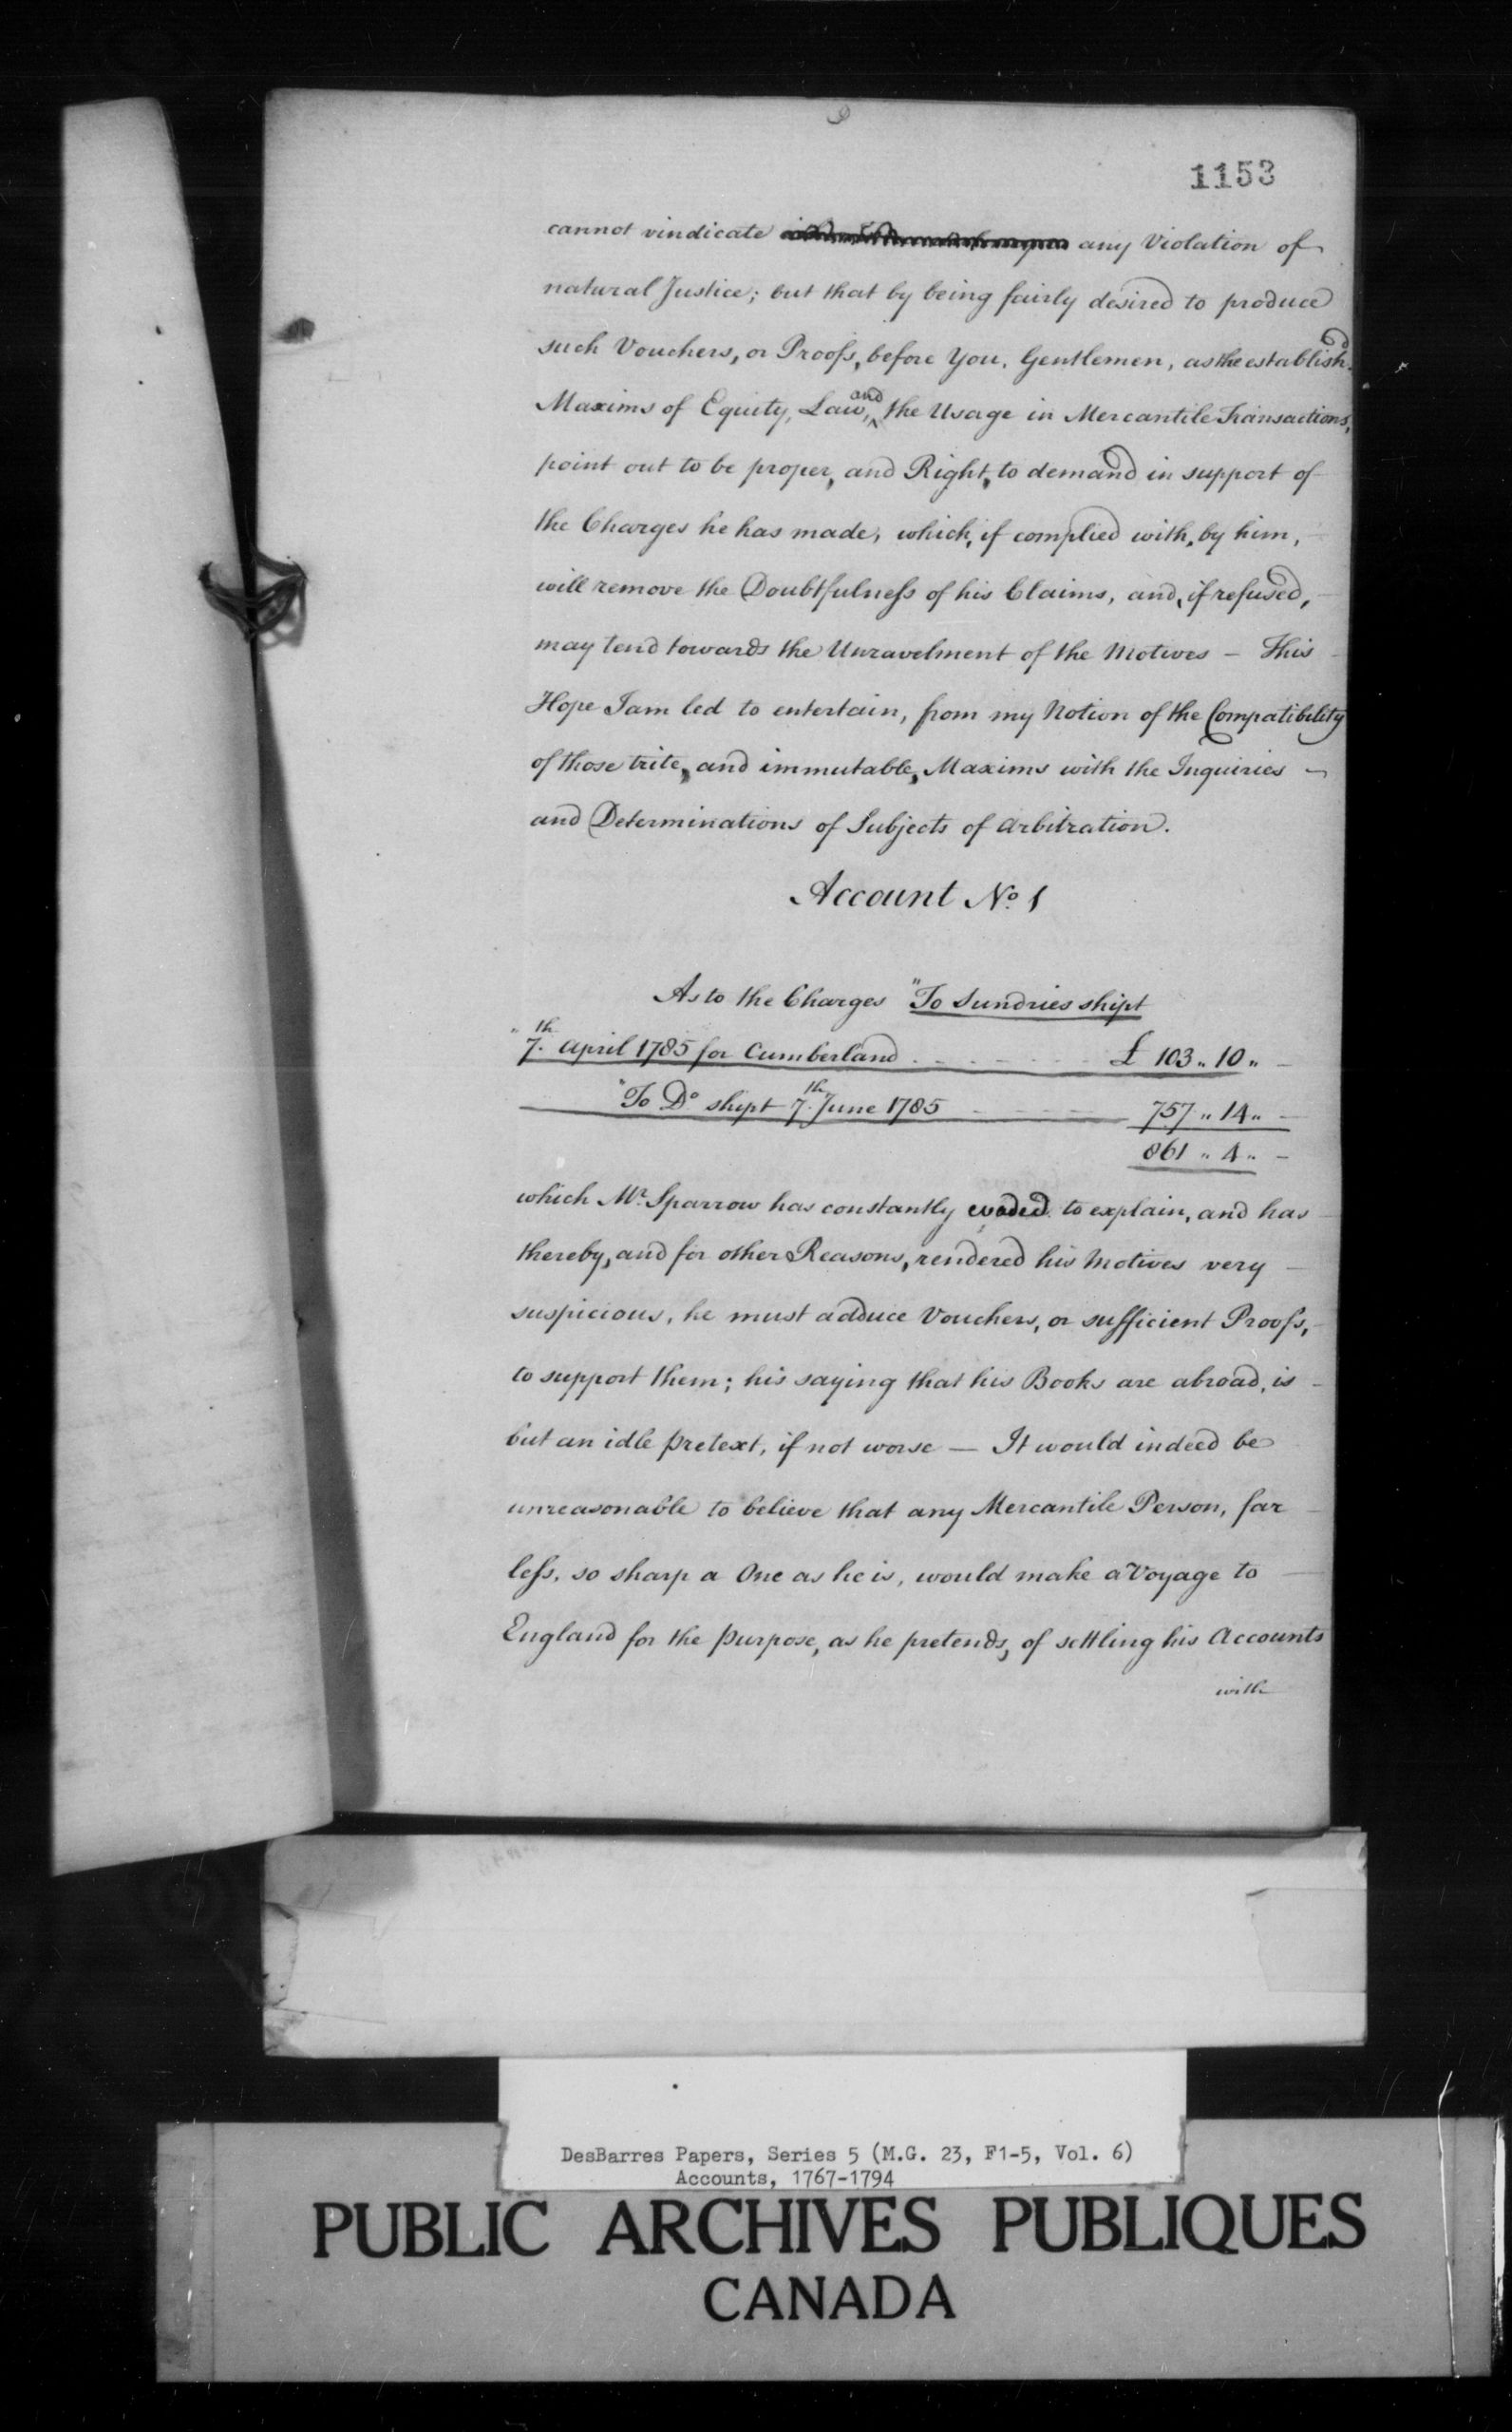 1153
cannot vindicate any Violation of
natural Justice; but that by being fairly desired to produce
such Vouchers, or Proofs, before You, Gentlemen, as the establish.d
Maxims of Equity, Law, and the Usage in Mercantile Transactions,
point out to be proper, and Right, to demand in support of
the Charges he has made, which, if complied with, by him,
will remove the Doubtfulness of his Claims, and, if refused,
may tend towards the Unravelment of the Motives – This
Hope I am led to entertain, from my Notion of the Compatibility
of those trite, and immutable, Maxims with the Inquiries
and Determinations of Subjects of Arbitration.
Account No. 1
As to the Charges "To Sundries shipt
" 7.th April 1785 for Cumberland . - - - - £ 103 „ 10 „ –
"To Do shipt 7.th June 1785 - - - - 757 „ 14 „ –
861 „ 4 „ –
which Mr. Sparrow has constantly evaded to explain, and has
thereby, and for other Reasons, rendered his Motives very
suspicious, he must adduce Vouchers, or sufficient Proofs,
to support them; his saying that his Books are abroad, is
but an idle pretext, if not worse — It would indeed be
unreasonable to believe that any Mercantile Person, far
less, so sharp a One as he is, would make a Voyage to
England for the Purpose, as he pretends, of settling his Accounts
with
DesBarres Papers, Series 5 (M.G. 23, F1-5, Vol. 6)
Accounts, 1767-1794
PUBLIC ARCHIVES PUBLIQUES
CANADA